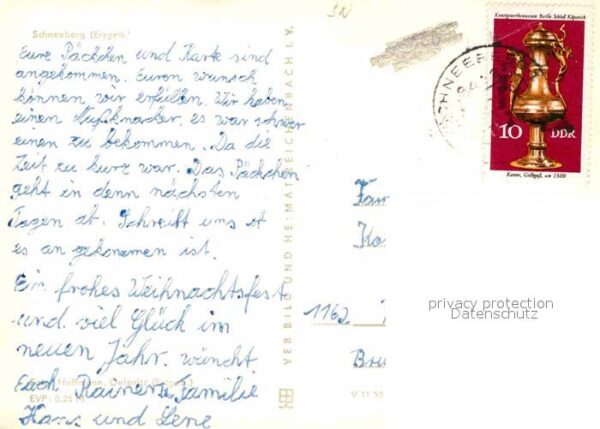 Schneeberg (Erzgeb.)
Eure Päckchen und Karte sind
angekommen. Euren wunsch
können wir erfüllen. Wir haben
einen Nußknacker, es war schwer
einen zu bekommen. Da die
Zeit zu kurz war. Das Päckchen
geht in denn nächsten
Tagen ab. Schreibt uns ob
es an gekommen ist.
Ein frohes Weihnachtsfest
und viel Glück im
neuen Jahr. wüncht
Euch Rainer u. Familie
Hans und Lene
Hoffmann, Oelsnitz (Erzgeb.)
EVP: 0,25 M
VEB BILD UND HEIMAT REICHENBACH I. V.
V 11 50
Kunstgewerbemuseum Berlin Schloß Köpenick
10 DDR
Kanne, Gelbguß, um 1500
SCHNEEBERG
1162
privacy protection
Datenschutz